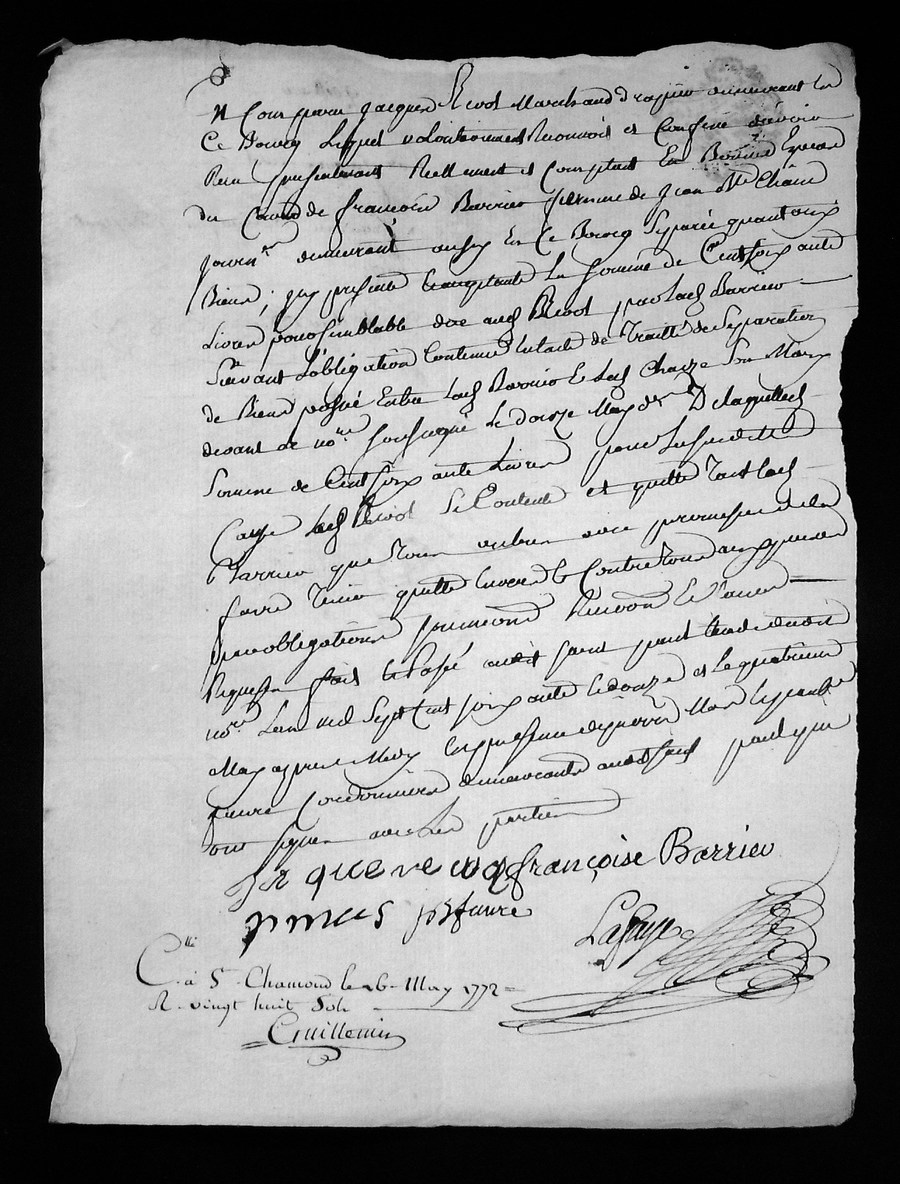 A Comparu Jacques Revol Marchand drapier demeurant en
Ce Bourg Lequel volontairement Reconnoit et Confesse d'avoir
Recu presentement Reellement et Comptant En Bonnes Especes
du Cours de françoise Barrieu femme de Jean Bte Chaize
journr demeurant aussy En Ce Bourg Separée quant aux
Biens, icy presente Acceptante La Somme de Cent soixante
Livres pour semblable due aud Revol par lad Barrieu
Suivant L'obligation Contenue En l'acte de Traitté de Separation
de Biens passé Entre Lad Barrieu Et Led Chaize Son Mary
devant Le nore soussigné Le douze May dr De laquelle
Somme de Cent soixante Livres pour Les susdittes
Causes Led Revol Se Contente et quitte Tant lad
Barrieu que Tous autres avec promesse de les
faire Tenir quitte Envers Et Contre Tous aux peines
par obligations soumissions Renonciations Et Clauses
Requises fait Et Passé audit Saint paul Etude dudit
nore L'an Mil Sept Cent soixante Et douze et Le quatrieme
May apres Midy En presence de pierre Mas et Jean Bte
faure Cordonniers demeurants audit Saint paul qui
ont signé avec Les parties
Jaqueve françoise Barrieu
pmas jbtfaure Lafaye
Clle à St Chamond le 16 May 1772
R. vingt huit Sols
Guillemin